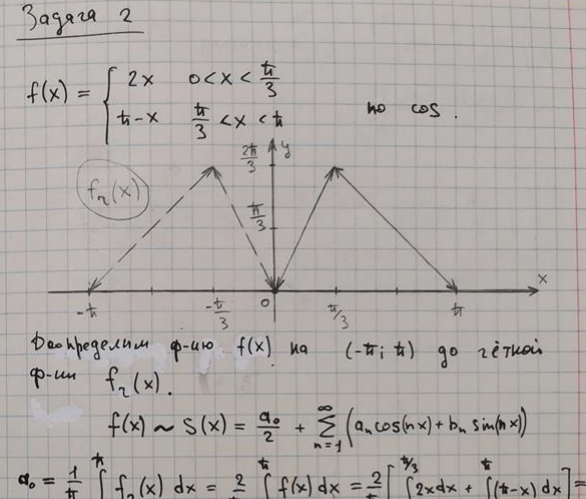 Задача 2
f(x) = { 2x 0<x<π/3
π-x π/3<x<π
по cos.
2π/3 y
f₂(x)
π/3
x
-π -π/3 0 π/3 π
Доопределим ф-ию f(x) на (-π; π) до чётной
ф-ии f₂(x).
f(x) ~ S(x) = a₀/2 + ∑_{n=1}^{∞} (aₙcos(nx) + bₙ sin(nx))
a₀ = 1/π ∫ f₂(x) dx = 2/π ∫ f(x) dx = 2/π [ ∫ 2xdx + ∫ (π-x) dx ] =